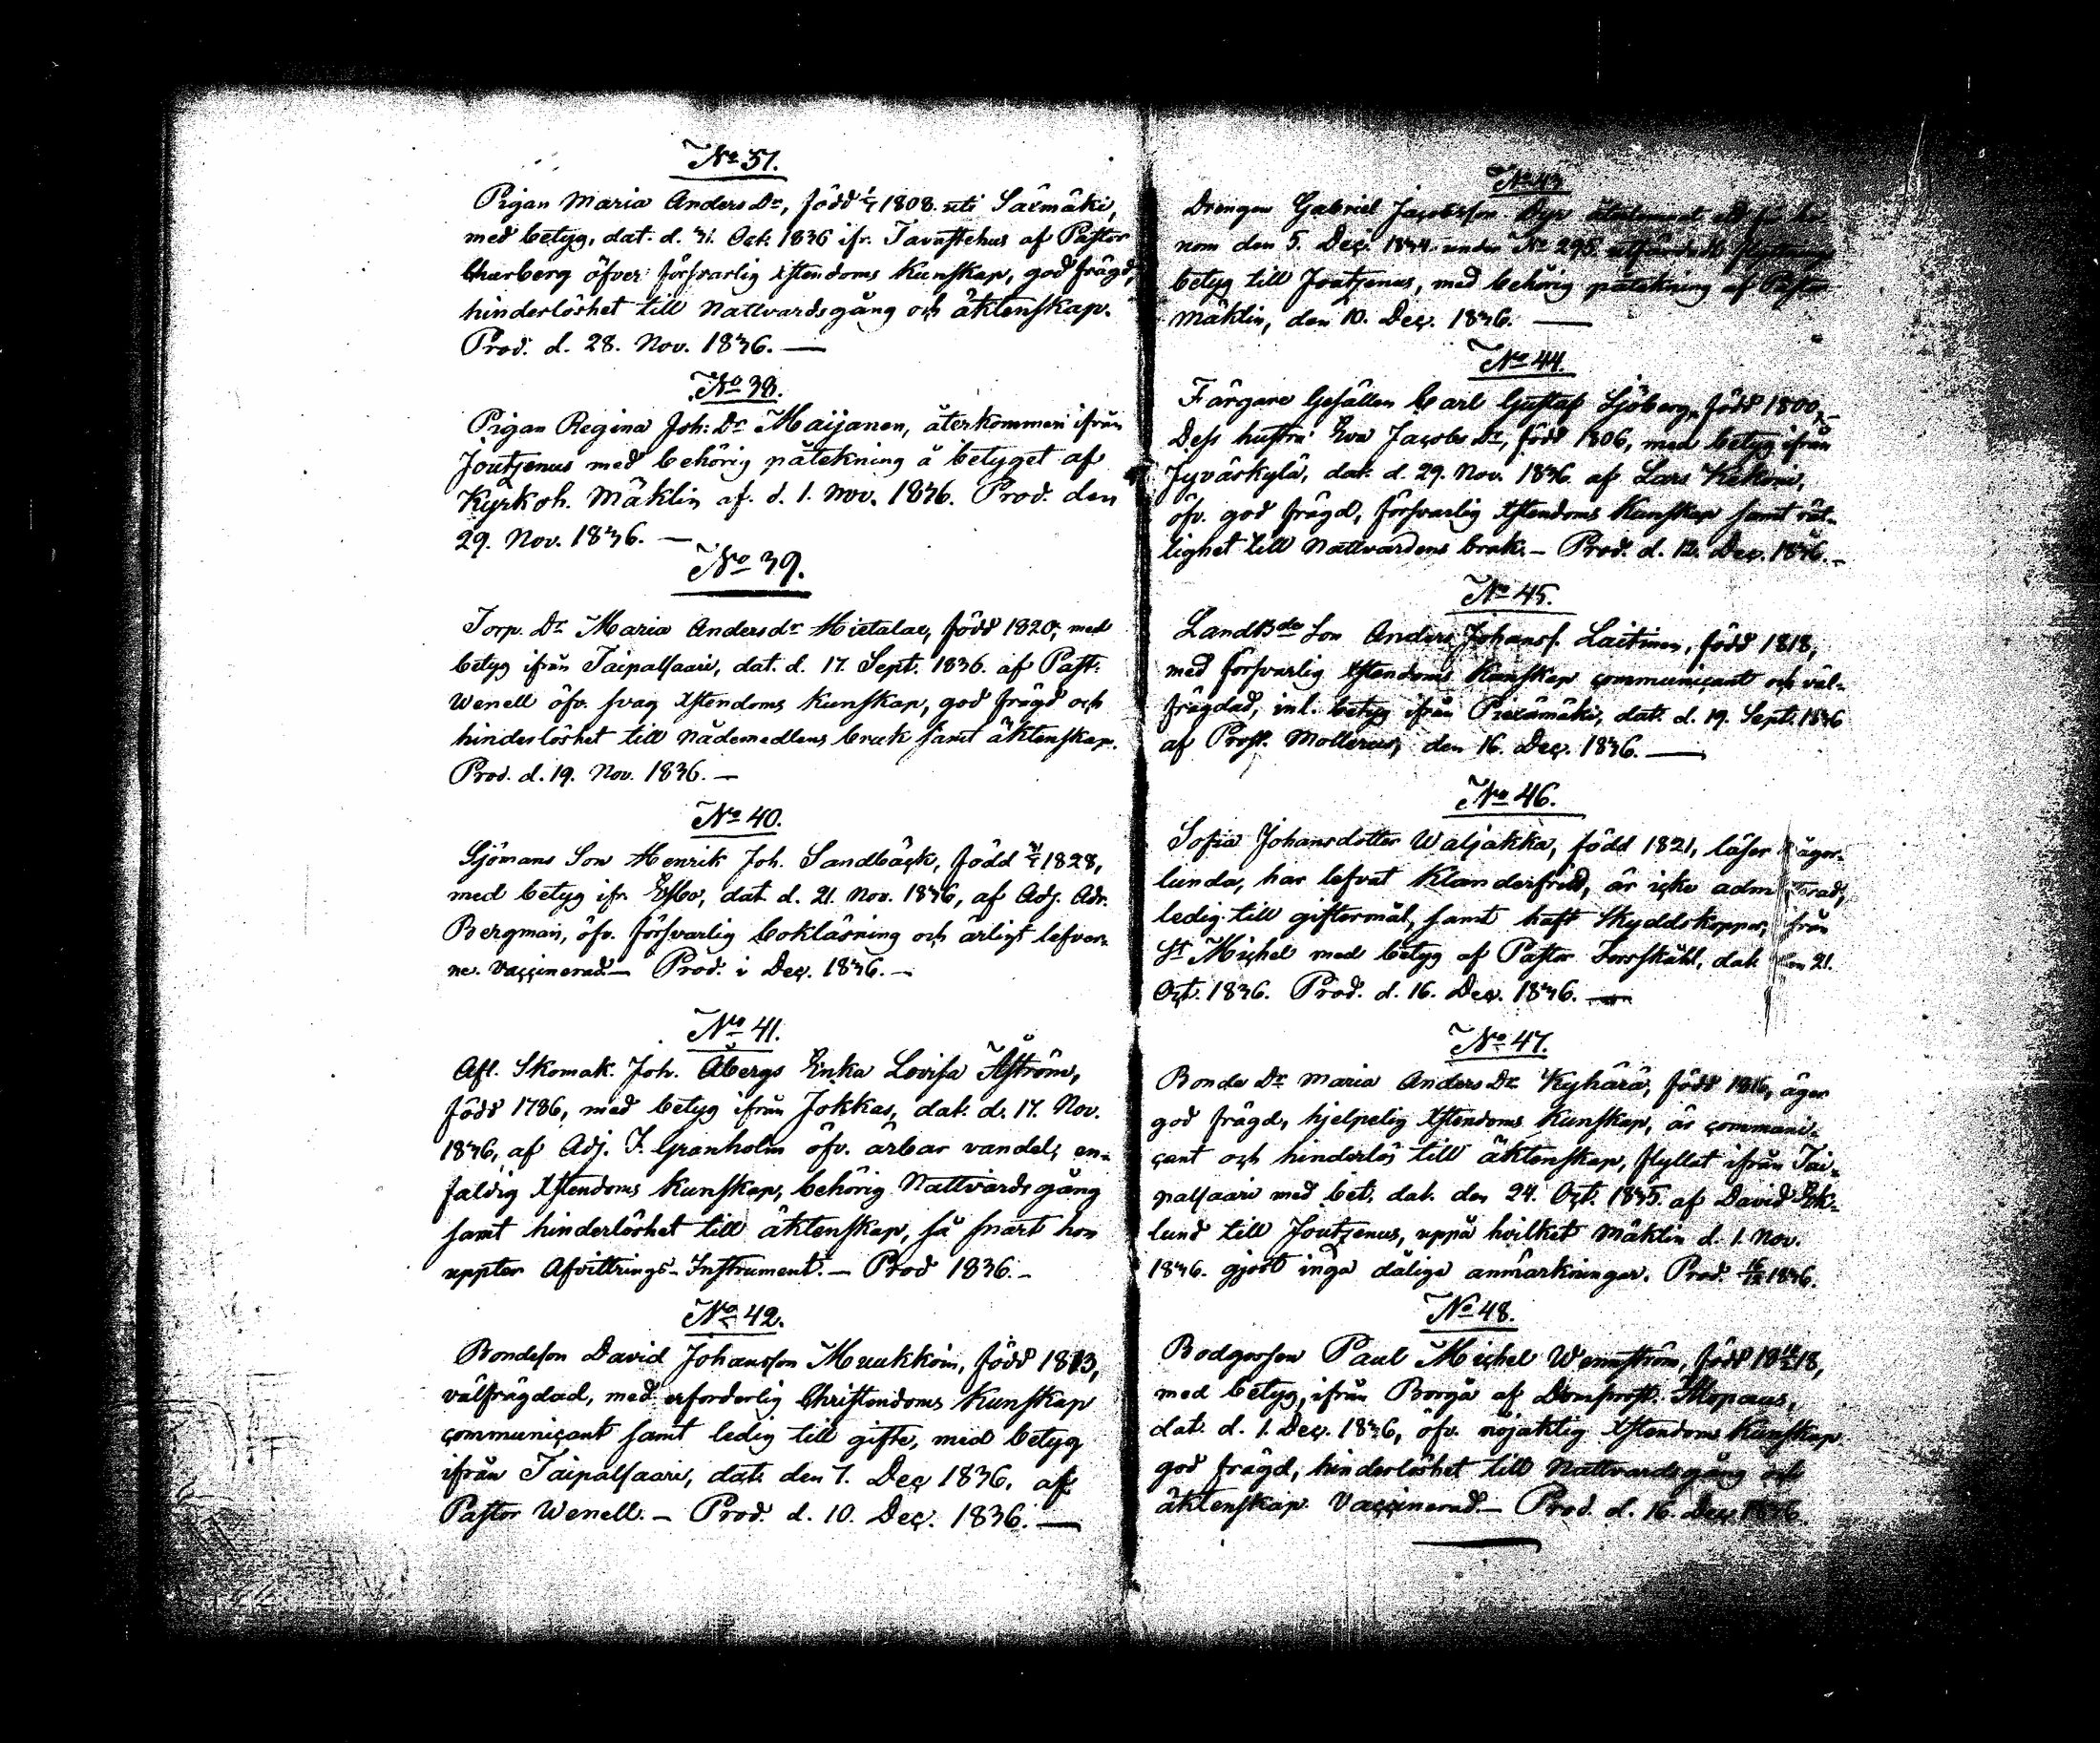 No 37.
Pigan Maria Anders Dr, född 1808. uti Säimäki,
med betyg, dat. d. 31. Oct. 1836 ifr. Tavastehus af Pastor
Churberg öfver försvarlig Xstendoms kunskap, god frägd,
hinderlöshet till Nattvardsgång och äktenskap.
Prod. d. 28. Nov. 1836. —
No 38.
Pigan Regina Joh: Dr Maijanen, återkommen ifrån
Joutzenus med behörig påtekning å betyget af
Kyrkoh. Mäklin af. d. 1. Nov. 1836. Prod. den
29. Nov. 1836. —
No 39.
Torp. Dr Maria Andersdr Hietalae, född 1820, med
betyg ifrån Taipalsaari, dat. d. 17. Sept. 1836. af Past.
Wenell öfv. svag Xstendoms kunskap, god frägd och
hinderlöshet till nådemedlens bruk samt äktenskap.
Prod. d. 19. Nov. 1836. —
No 40.
Sjömans Son Henrik Joh. Sandbäck, född 1828,
med betyg ifr. Esbo, dat. d. 21. Nov. 1836, af Adj. Adr.
Bergman, öfv. försvarlig bokläsning och ärligt lefver-
ne. Vaccinerad. — Prod. i Dec. 1836. —
No 41.
Afl. Skomak. Joh. Åbergs Enka Lovisa Åström,
född 1786, med betyg ifrån Jokkas, dat. d. 17. Nov.
1836, af Adj. J. Granholm öfv. ärbar vandel, en-
faldig Xstendoms kunskap, behörig Nattvards gång
samt hinderlöshet till äktenskap, så snart hon
uppter Afvittrings-Instrument. — Prod 1836. —
No 42.
Bondeson David Johansson Muukkoin, född 1813,
välfrägdad, med erforderlig Christendoms kunskap
communicant samt ledig till gifte, med betyg
ifrån Taipalsaari, dat. den 7. Dec 1836. af
Pastor Wenell. — Prod. d. 10. Dec. 1836. —
No 43.
Drengen Gabriel Jacobsson
nom den 5. Dec. 1834. under No 295.
betyg till Joutzenus, med behörig påtekning af Pastor
Mäklin, den 10. Dec. 1836. —
No 44.
Färgare Gesällen Carl Gustaf Sjöberg, född 1800,
Dess hustru Eva Jacobs Dr, född 1806, med betyg ifrån
Jyväskylä, dat. d. 29. Nov. 1836. af Lars Kekoni,
öfv. god frägd, försvarlig Xstendoms kunskap samt rät-
lighet till Nattvardens bruk. — Prod. d. 12. Dec. 1836. —
No 45.
Landbde Son Anders Johanss. Laitinen, född 1818,
med försvarlig Xstendoms kunskap communicant och väl-
frägdad, inl. betyg ifrån Piexämäki, dat. d. 19. Sept. 1836
af Prost. Mollerus, den 16. Dec. 1836. —
No 46.
Sofia Johansdotter Waljakka, född 1821, läser någor-
lunda, har lefvat klanderfritt, är icke adm
ledig till giftermål, samt haft skyddskoppor, ifrån
St Michel med betyg af Pastor Forsskåhl, dat. den 21.
Oct. 1836. Prod. d. 16. Dec. 1836. —
No 47.
Bonde Dr Maria Anders Dr Kyhärä, född 1816, äger
god frägd, hjelpelig Xstendoms kunskap, är communi-
cant och hinderlös till äktenskap, flyttat ifrån Tai-
palsaari med bet. dat. den 24. Oct. 1835. af David Ek-
lund till Joutzenus, uppå hvilket Mäklin d. 1. Nov.
1836. gjort inga dåliga anmärkningar. Prod. 16/12 1836.
No 48.
Bodgossen Paul Michel Wennström, född 18 18,
med betyg, ifrån Borgå af Domprost.
dat. d. 1. Dec. 1836, öfv. nöjaktig Xstendoms kunskap
god frägd, hinderlöshet till Nattvardsgång och
äktenskap. Vaccinerad. — Prod. d. 16. Dec. 1836.